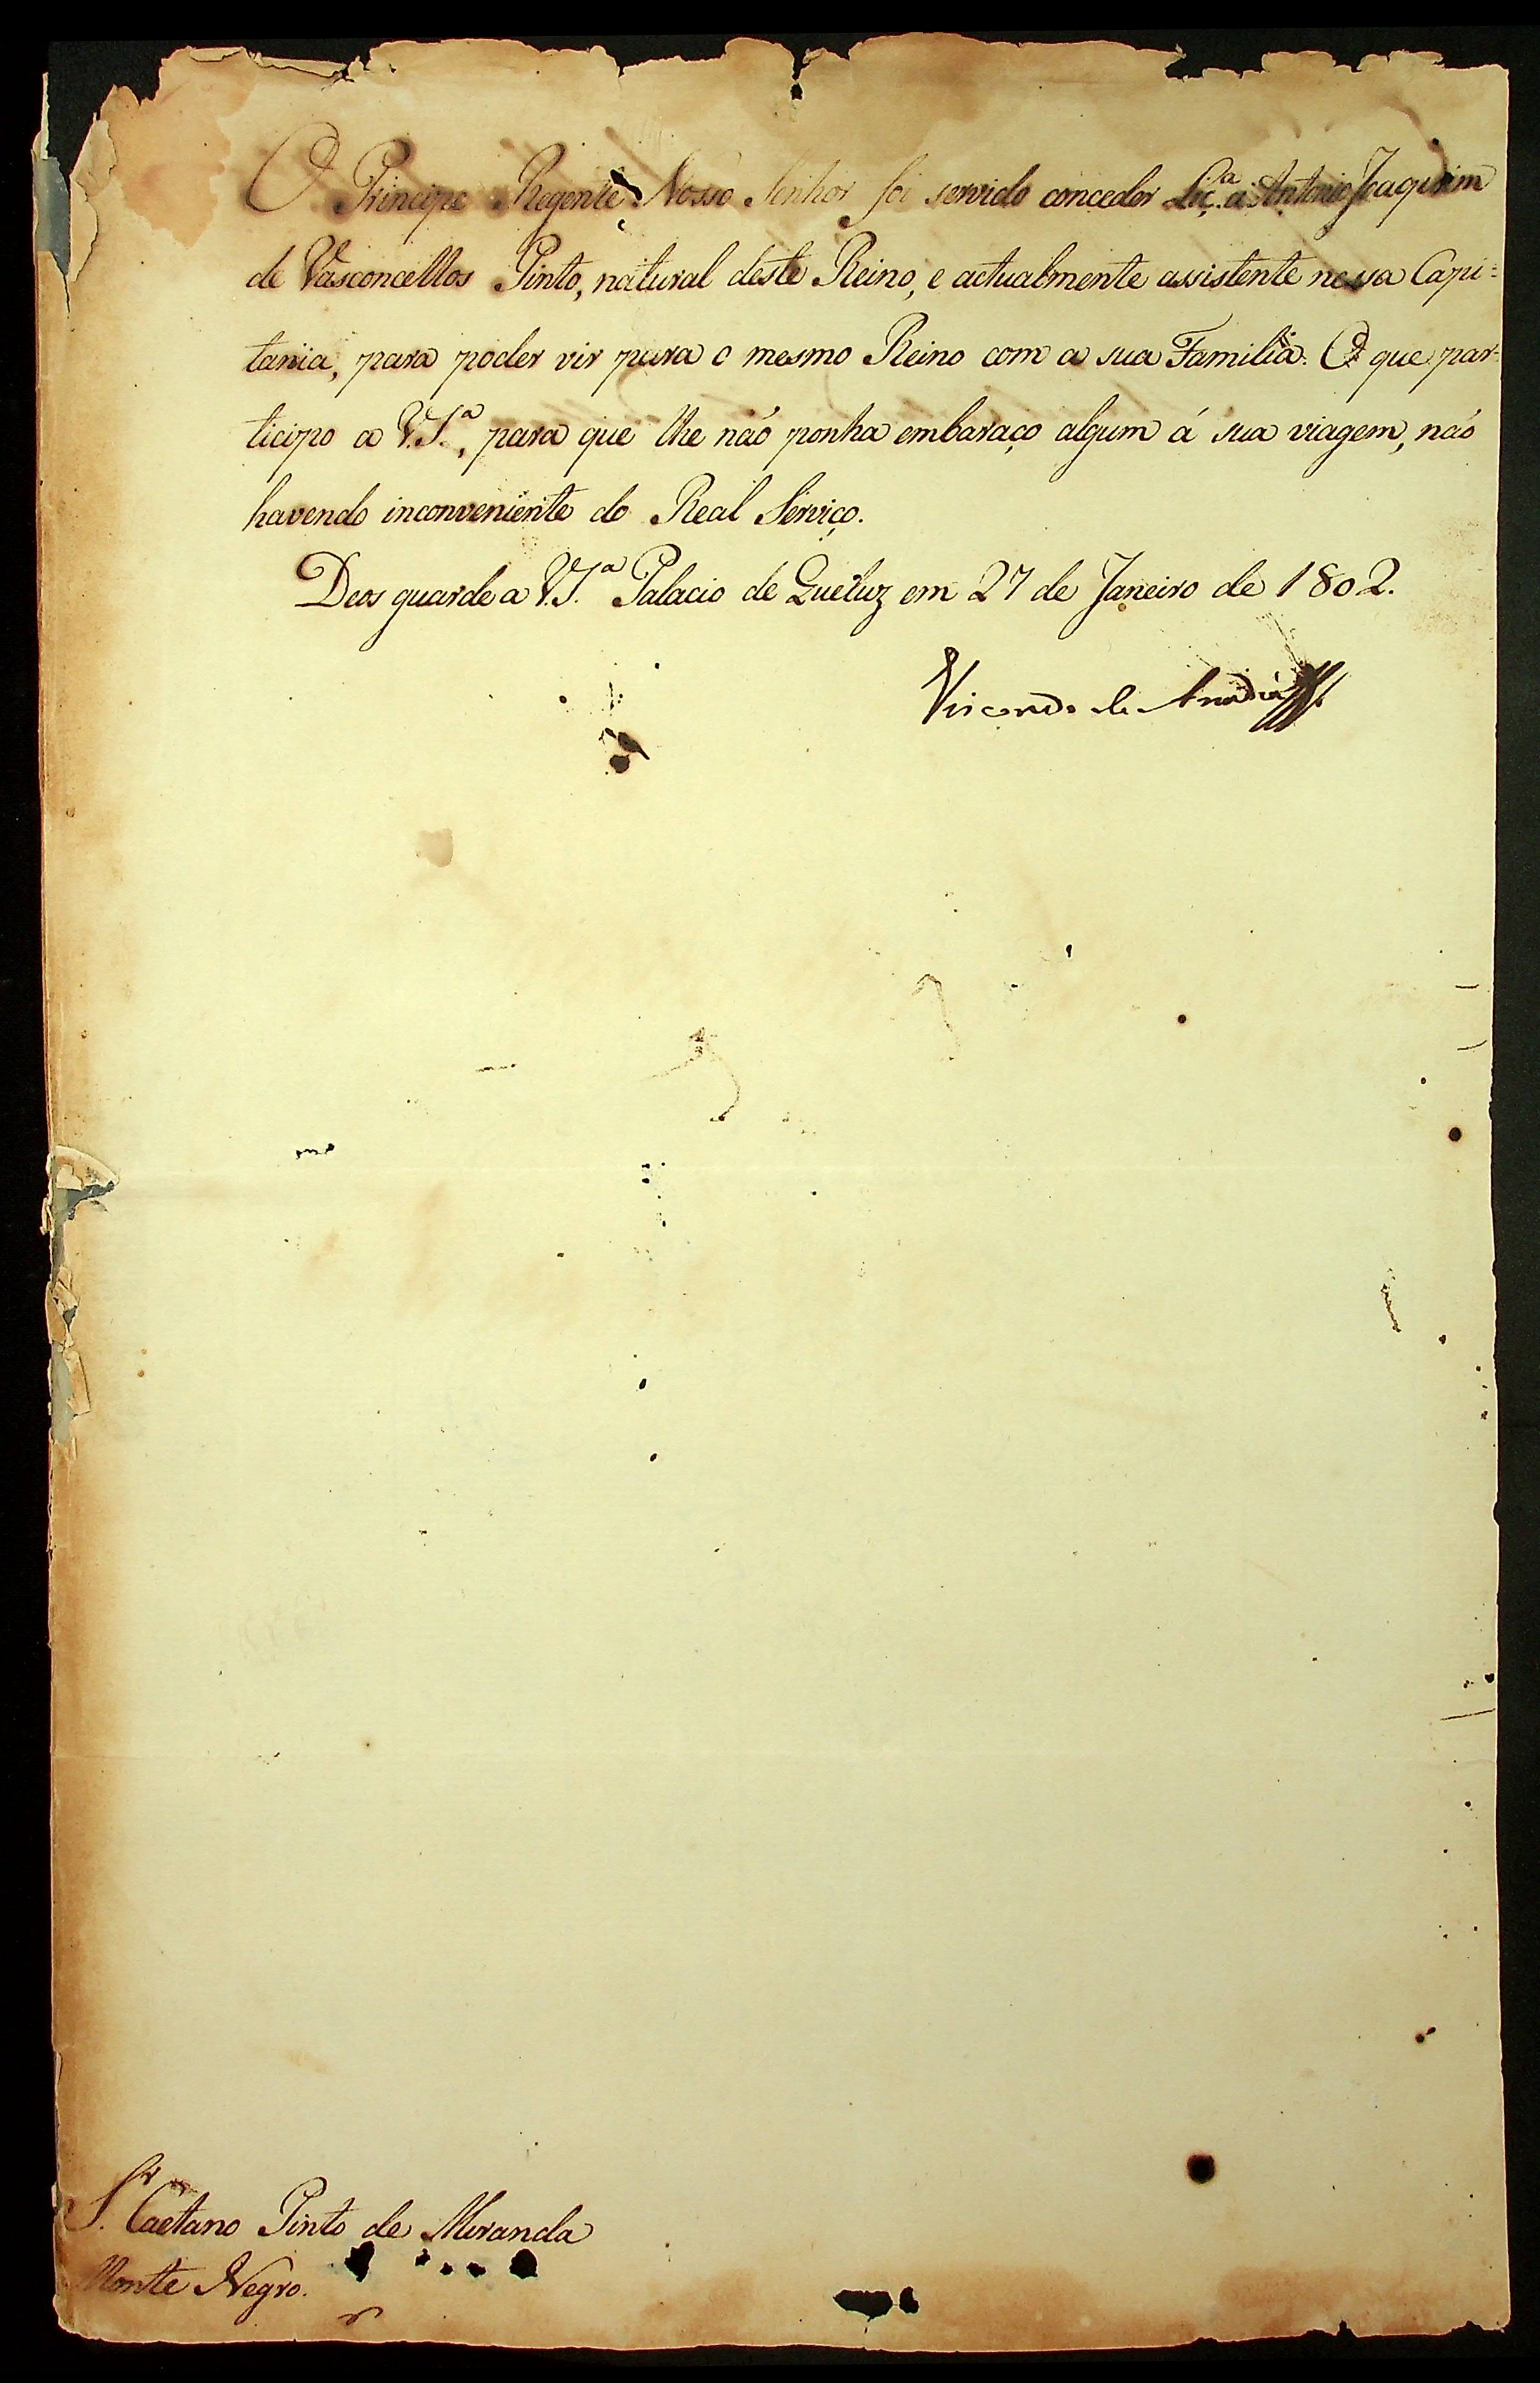 O Principe Regente Nosso Senhor foi servido conceder Liç.ª a Antonio Joaquim
de Vasconcellos Pinto, natural deste Reino, e actualmente assistente nessa Capi=
tania, para poder vir para o mesmo Reino com a sua Familia. O que par=
ticipo a V.S.ª, para que lhe naõ ponha embaraço algum á sua viagem, naõ
havendo inconveniente do Real Serviço.
Deos guarde a V.S.ª Palacio de Queluz em 27 de Janeiro de 1802.
Visconde de Anadia
S.r Caetano Pinto de Miranda
Monte Negro.